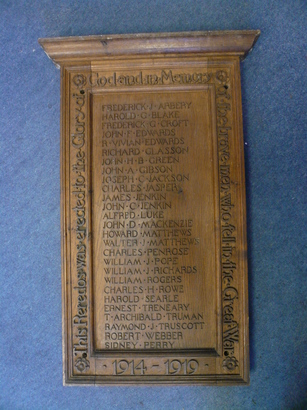 This Reredos was erected to the Glory of
God and in Memory
of those men who fell in the Great War
FREDERICK · J · ARBERY
HAROLD · G · BLAKE
FREDERICK · G · CROFT
JOHN · F · EDWARDS
R · VIVIAN · EDWARDS
RICHARD · GLASSON
JOHN · H · B · GREEN
JOHN · A · GIBSON
JOSEPH · C · JACKSON
CHARLES · JASPER
JAMES · JENKIN
JOHN · C · JENKIN
ALFRED · LUKE
JOHN · D · MACKENZIE
HOWARD · MATTHEWS
WALTER · J · MATTHEWS
CHARLES · PENROSE
WILLIAM · J · POPE
WILLIAM · J · RICHARDS
WILLIAM · ROGERS
CHARLES · H · ROWE
HAROLD · SEARLE
ERNEST · TRENEARY
T · ARCHIBALD · TRUMAN
RAYMOND · J · TRUSCOTT
ROBERT · WEBBER
SIDNEY · PERRY
· 1914 - 1919 ·